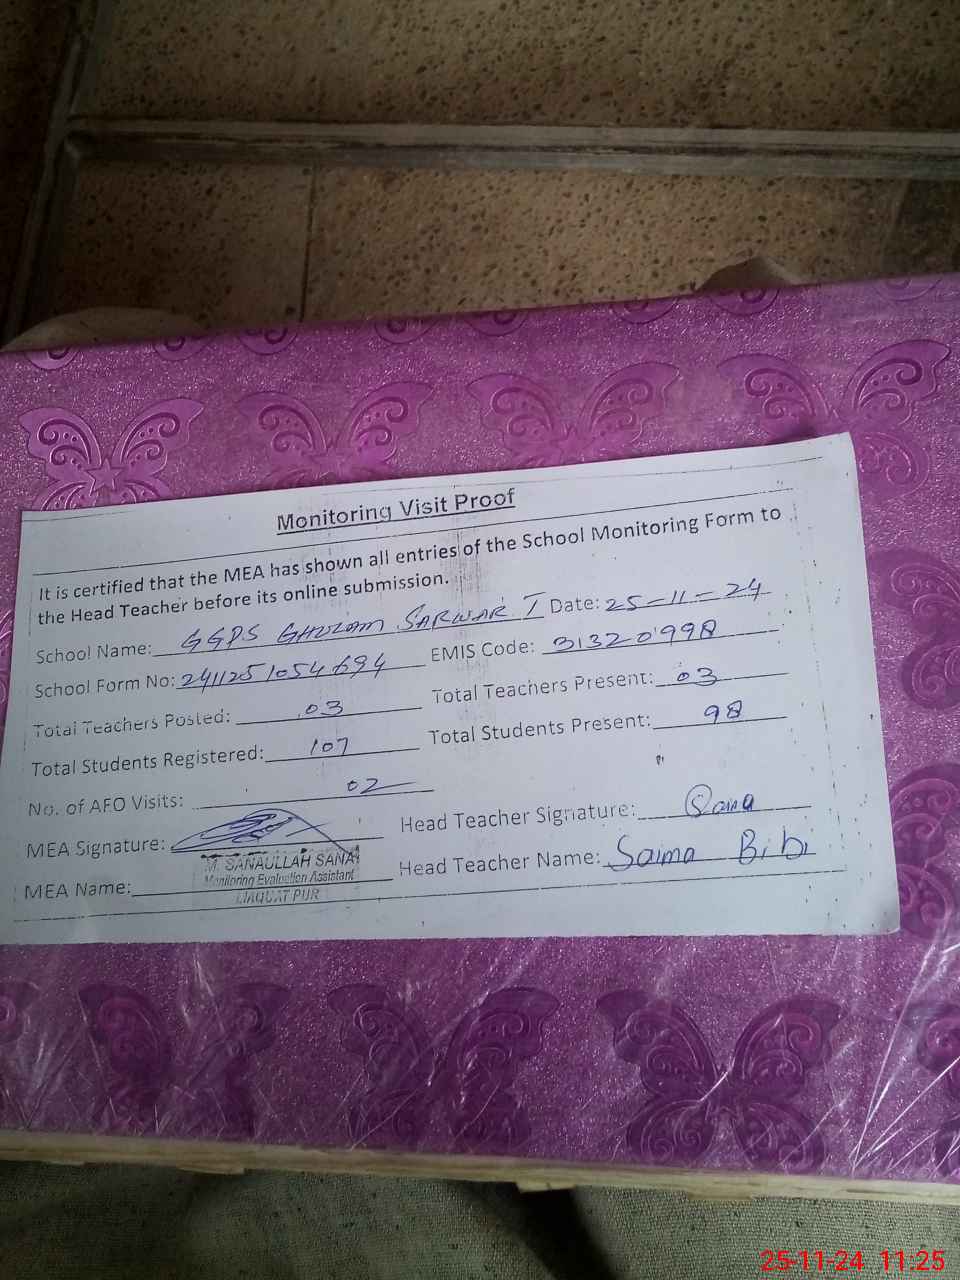 Monitoring Visit Proof
It is certified that the MEA has shown all entries of the School Monitoring Form to
the Head Teacher before its online submission.
School Name: GGPS GHULAM SARWAR I Date: 25-11-24
School Form No: 2411251054694 EMIS Code: 31320998
Total Teachers Posted: 03 Total Teachers Present: 03
Total Students Registered: 107 Total Students Present: 98
No. of AFO Visits: 02
MEA Signature: Head Teacher Signature:
M. SANAULLAH SANA
Monitoring Evaluation Assistant
LIAQUAT PUR
MEA Name: Head Teacher Name: Saima Bibi
25-11-24 11:25